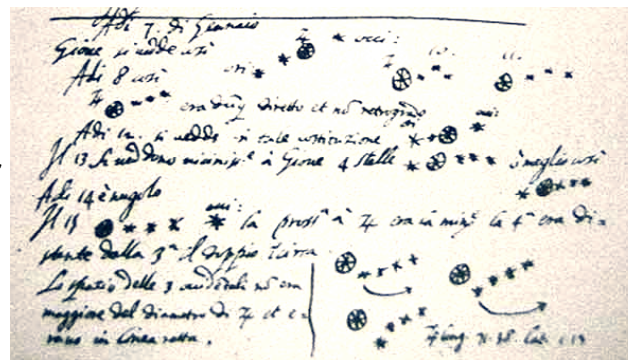 Adi 7. di Gennaio
Gione si vedde così ori: ♃ occi:
Adi 8 così 10. 11.
♃ era dūq diretto et nō retrogrado
Adi 12. si vedde in tale costituzione ori occi:
Il 13 si veddono à Gione 4 stelle ò meglio così
Adi 14 è nugolo
Il 15 occi: la pross.ª à ♃ era la min.ª la 4ª era di=
stante dalla 3ª il doppio
Lo spatio delle 3 occidētali nō era
maggiore del diametro di ♃ et e=
rano in linea retta.
♃ long. 71.38 lat. 1.13